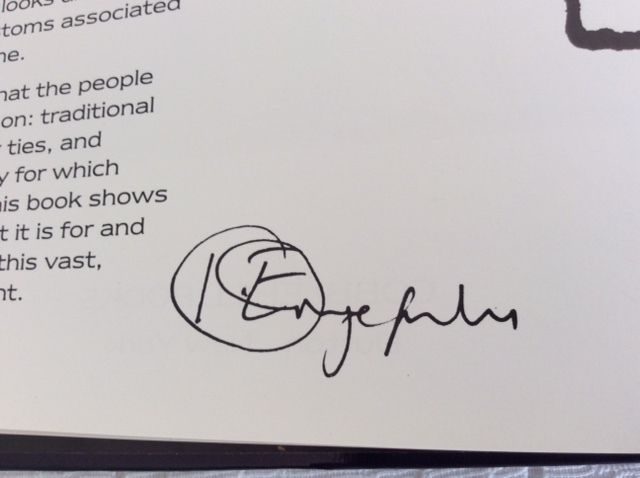 looks
toms associated
ne.
hat the people
on: traditional
ties, and
y for which
his book shows
t it is for and
this vast,
nt.